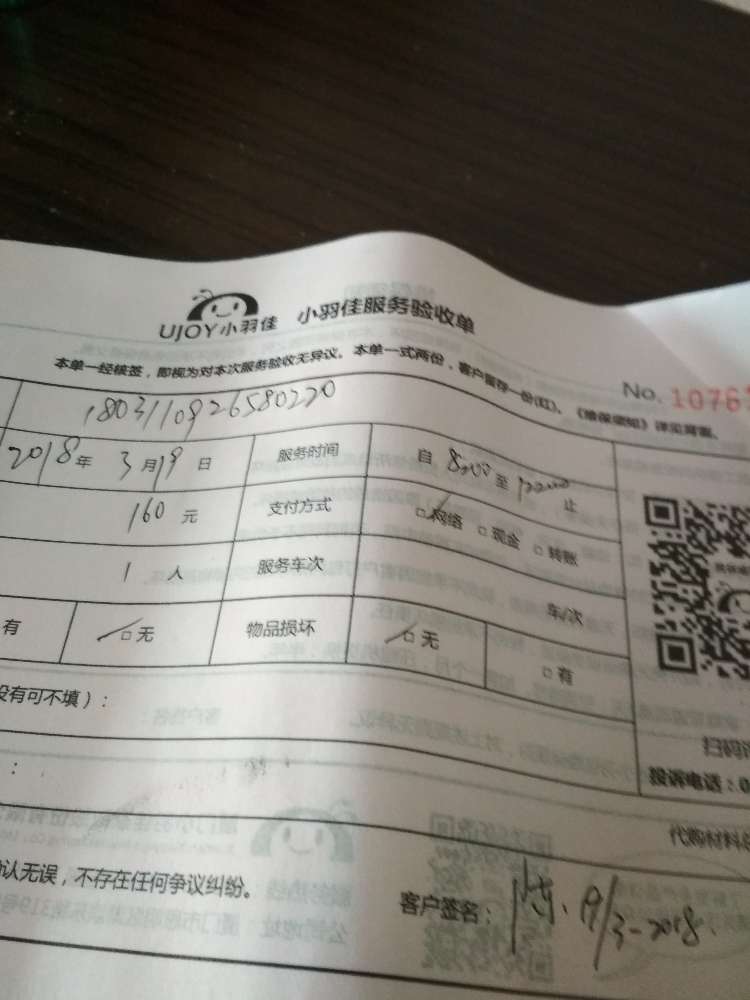 UJOY小羽佳 小羽佳服务验收单
本单一经核签，即视为对本次服务验收无异议。本单一式两份，客户留存一份(红)。《维保须知》详见背面。
No. 1076
1803110926580220
2018年 3月19日 服务时间 自 8:00 至 12:00 止
160 元 支付方式 网络 现金 转账
1 人 服务车次 车/次
有 无 物品损坏 无 有
没有可不填）：
：
扫码
投诉电话：0
代购材料
确认无误，不存在任何争议纠纷。
客户签名： 19/3-2018